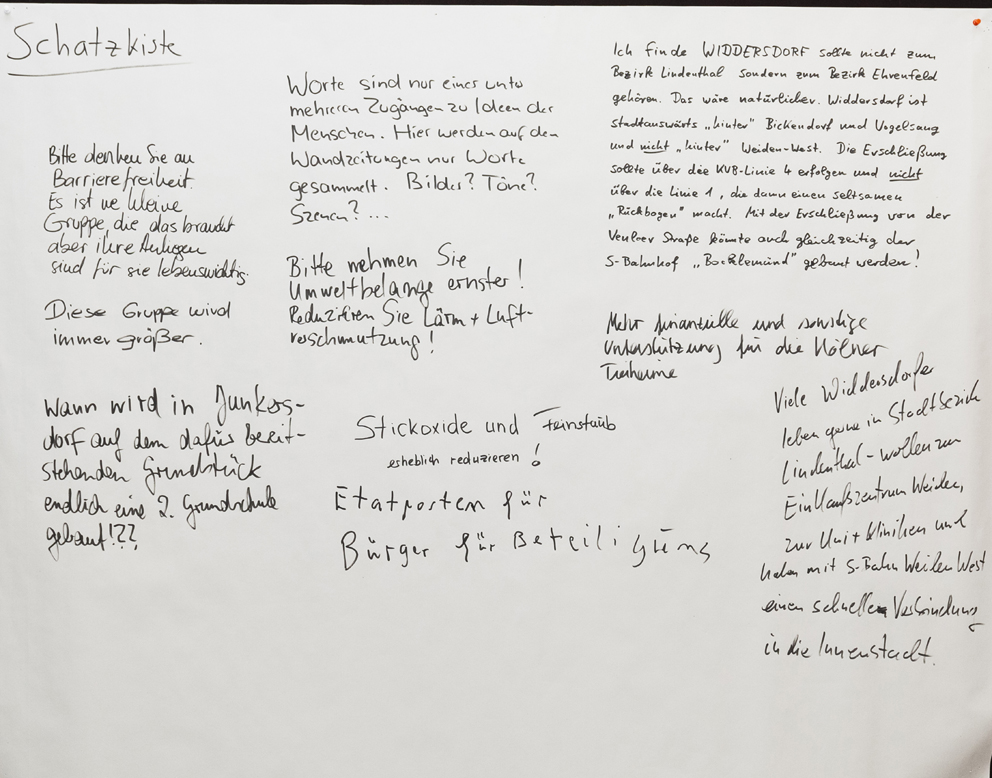 Schatzkiste
Bitte denken Sie an
Barrierefreiheit.
Es ist ne kleine
Gruppe, die das braucht
aber ihre Anliegen
sind für sie lebenswichtig.
Diese Gruppe wird
immer größer.
Wann wird in Junkers-
dorf auf dem dafür bereit-
stehenden Grundstück
endlich eine 2. Grundschule
gebaut!??
Worte sind nur eines unter
mehreren Zugängen zu Ideen der
Menschen. Hier werden auf den
Wandzeitungen nur Worte
gesammelt. Bilder? Töne?
Szenen? ...
Bitte nehmen Sie
Umweltbelange ernster!
Reduzieren Sie Lärm + Luft-
verschmutzung!
Stickoxide und Feinstaub
erheblich reduzieren!
Etatposten für
Bürger für Beteiligung
Ich finde WIDDERSDORF sollte nicht zum
Bezirk Lindenthal sondern zum Bezirk Ehrenfeld
gehören. Das wäre natürlicher. Widdersdorf ist
stadtauswärts „hinter" Bickendorf und Vogelsang
und nicht „hinter" Weiden-West. Die Erschließung
sollte über die KVB-Linie 4 erfolgen und nicht
über die Linie 1, die dann einen seltsamen
„Rückbogen" macht. Mit der Erschließung von der
Venloer Straße könnte auch gleichzeitig der
S-Bahnhof „Bocklemünd" gebaut werden!
Mehr finanzielle und sonstige
Unterstützung für die Kölner
Tierheime
Viele Widdersdorfer
leben gerne in Stadtbezirk
Lindenthal - wollen zum
Einkaufszentrum Weiden,
zur Uni + Kliniken und
haben mit S-Bahn Weiden West
einen schnelle Verbindung
in die Innenstadt.